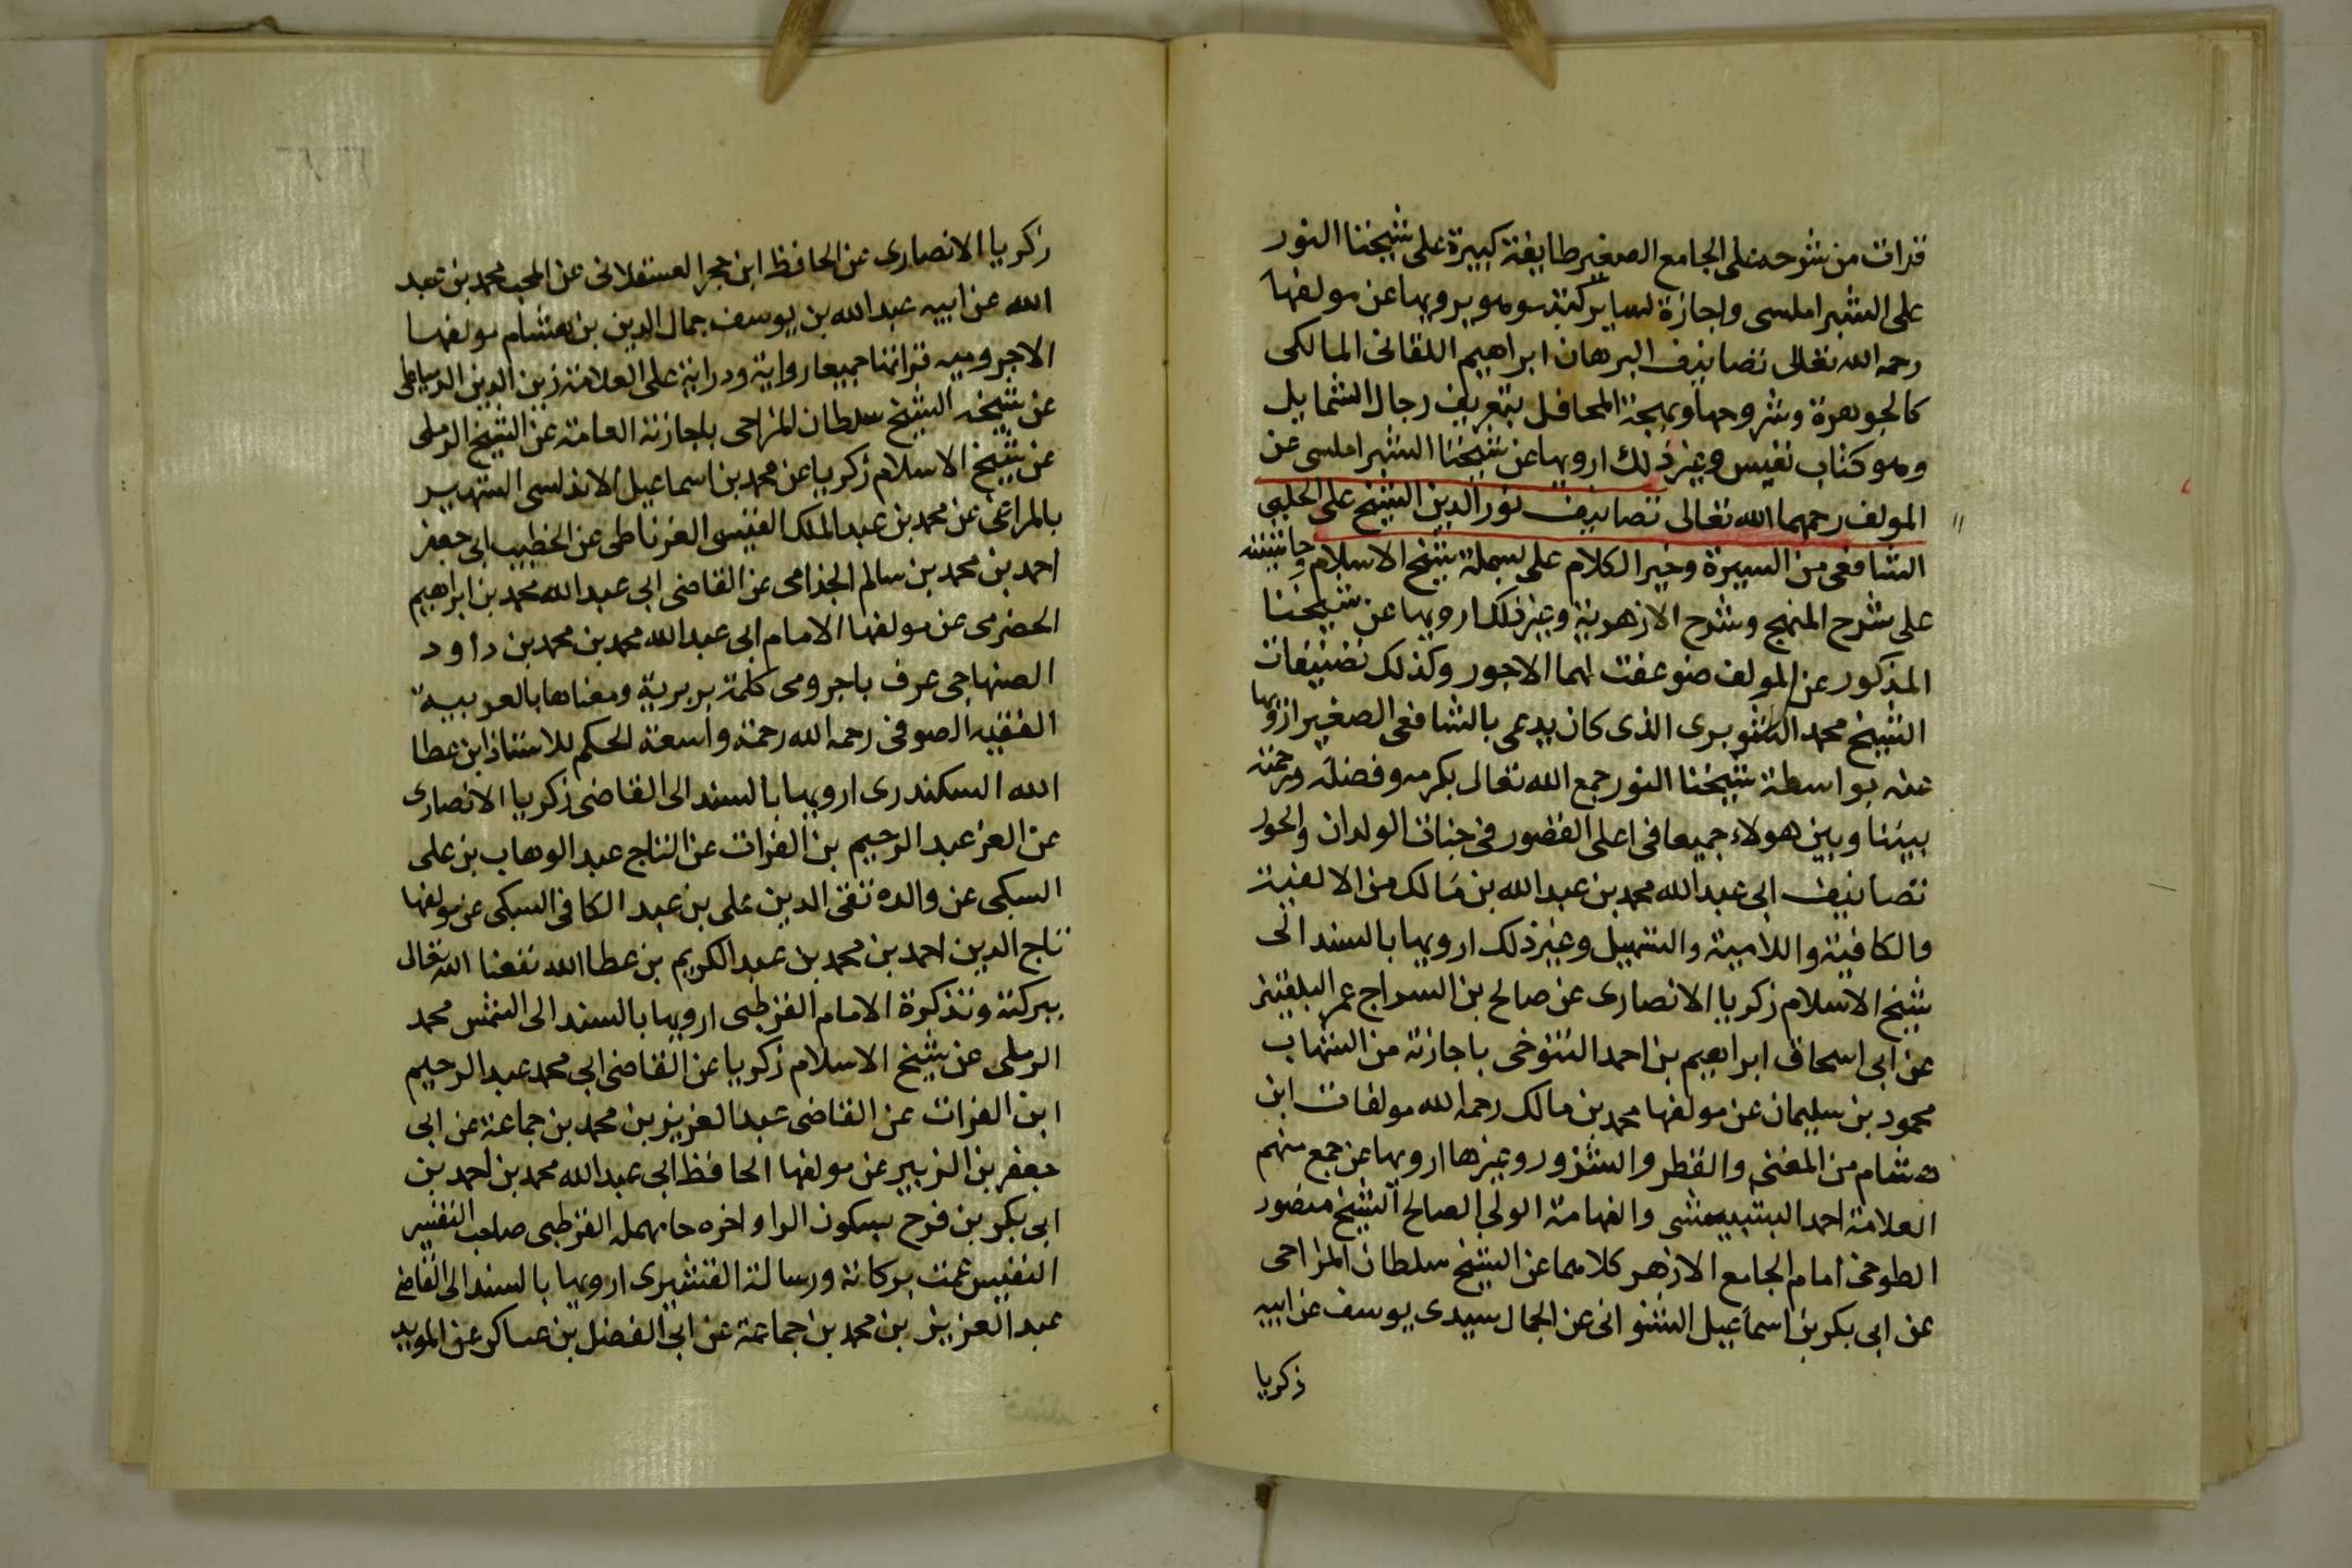 قرات من شرحه على الجامع الصغير طايفة كبيرة على شيخنا النور
على الشبراملسى واجازة لساير كتبه وهو يرويها عن مولفها
رحمه الله تعالى تصانيف البرهان ابراهيم اللقانى المالكى
كالجوهرة وشروحها وبهجة المحافل بتعريف رجال الشمايل
وهو كتاب نفيس وغير ذلك ارويها عن شيخنا الشبراملسى عن
المولف رحمهما الله تعالى تصانيف نور الدين الشيخ على الحلبى
الشافعى من السيرة وخير الكلام على بسملة شيخ الاسلام وحاشيته
على شرح المنهج وشرح الازهرية وغير ذلك ارويها عن شيخنا
المذكور عن المولف ضوعفت لهما الاجور وكذلك تصنيفات
الشيخ محمد الشوبرى الذى كان يدعى بالشافعى الصغير ارويها
عنه بواسطة شيخنا النور جمع الله تعالى بكرمه وفضله ورحمته
بيننا وبين هولاء جميعا فى اعلى القصور فى جنات الولدان والحور
تصانيف ابى عبد الله محمد بن عبد الله بن مالك من الالفية
والكافية واللامية والتسهيل وغير ذلك ارويها بالسند الى
شيخ الاسلام زكريا الانصارى عن صالح بن السراج عمر البلقينى
عن ابى اسحاق ابراهيم بن احمد التنوخى باجازته من الشهاب
محمود بن سليمان عن مولفها محمد بن مالك رحمه الله مولفات ابن
هشام من المغنى والقطر والشذور وغيرها ارويها عن جمع منهم
العلامة احمد البشبيشى والفهامة الولى الصالح الشيخ منصور
الطوخى امام الجامع الازهر كلاهما عن الشيخ سلطان المزاحى
عن ابى بكر بن اسماعيل الشنوانى عن الجمال سيدى يوسف عن ابيه
زكريا
زكريا الانصارى عن الحافظ ابن حجر العسقلانى عن المحب محمد بن عبد
الله عن ابيه عبد الله بن يوسف جمال الدين بن هشام مولفها
الاجروميه قراتها جميعا رواية ودراية على العلامة زين الدين الدمياطى
عن شيخه الشيخ سلطان المزاحى باجازته العامة عن الشيخ الرملى
عن شيخ الاسلام زكريا عن محمد بن اسماعيل الاندلسى الشهير
بالمراعى عن محمد بن عبد الملك القيسى الغرناطى عن الخطيب ابى جعفر
احمد بن محمد بن سالم الجذامى عن القاضى ابى عبد الله محمد بن ابراهيم
الحضرمى عن مولفها الامام ابى عبد الله محمد بن محمد بن داود
الصنهاجى عرف باجرومى كلمة بربرية ومعناها بالعربية
الفقيه الصوفى رحمه الله رحمة واسعة الحكم للاستاذ ابن عطا
الله السكندرى ارويها بالسند الى القاضى زكريا الانصارى
عن العز عبد الرحيم بن الفرات عن التاج عبد الوهاب بن على
السبكى عن والده تقى الدين على بن عبد الكافى السبكى عن مولفها
تاج الدين احمد بن محمد بن عبد الكريم بن عطا الله نفعنا الله تعالى
ببركته وتذكرة الامام القرطبى ارويها بالسند الى الشمس محمد
الرملى عن شيخ الاسلام زكريا عن القاضى ابى محمد عبد الرحيم
ابن الفرات عن القاضى عبد العزيز بن محمد بن جماعة عن ابى
جعفر بن الزبير عن مولفها الحافظ ابى عبد الله محمد بن احمد بن
ابى بكر بن فرح بسكون الرا واخره حا مهمله القرطبى صاحب التفسير
النفيس عمت بركاته ورسالة القشيرى ارويها بالسند الى القاضى
عبد العزيز بن محمد بن جماعة عن ابى الفضل بن عساكر عن المويد